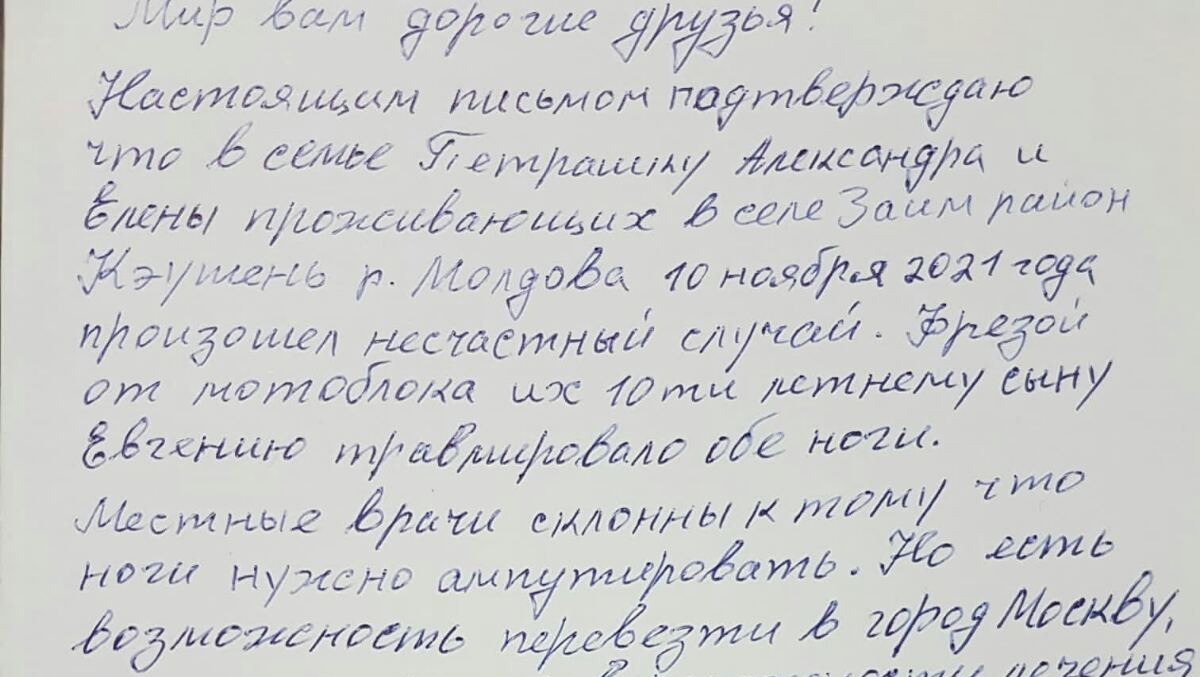 Мир вам дорогие друзья!
Настоящим письмом подтверждаю
что в семье Петрашку Александра и
Елены проживающих в селе Заим район
Кэушень р. Молдова 10 ноября 2021 года
произошел несчастный случай. Фрезой
от мотоблока их 10ти летнему сыну
Евгению травмировало обе ноги.
Местные врачи склонны к тому что
ноги нужно ампутировать. Но есть
возможность перевезти в город Москву,
лечения